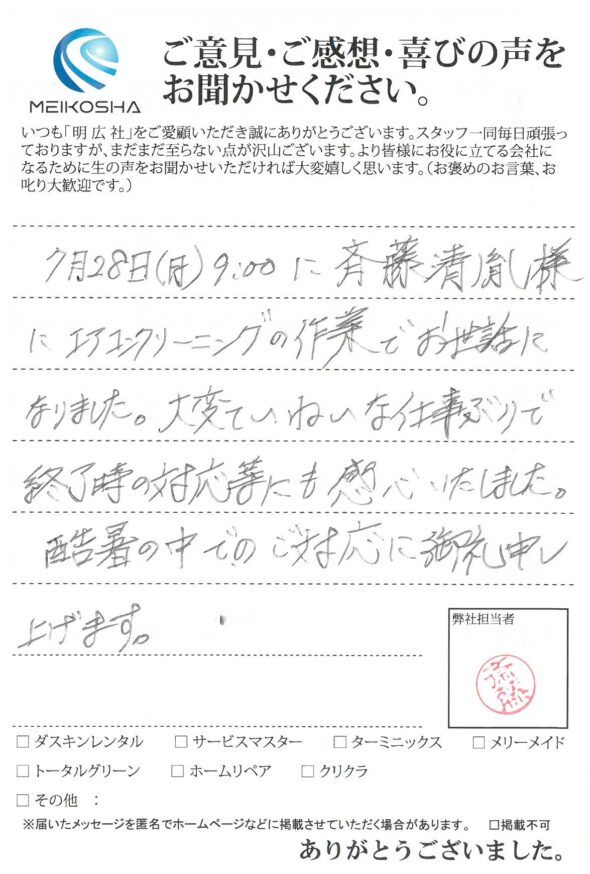 MEIKOSHA
ご意見・ご感想・喜びの声を
お聞かせください。
いつも「明広社」をご愛顧いただき誠にありがとうございます。スタッフ一同毎日頑張っ
ておりますが、まだまだ至らない点が沢山ございます。より皆様にお役に立てる会社に
なるために生の声をお聞かせいただければ大変嬉しく思います。（お褒めのお言葉、お
叱り大歓迎です。）
7月28日(月)9:00に斉藤清胤様
にエアコンクリーニングの作業でお世話に
なりました。大変ていねいな仕事ぶりで
終了時の対応等にも感心いたしました。
酷暑の中でのご対応に御礼申し
上げます。
弊社担当者
□ ダスキンレンタル □ サービスマスター □ ターミニックス □ メリーメイド
□ トータルグリーン □ ホームリペア □ クリクラ
□ その他 ：
※届いたメッセージを匿名でホームページなどに掲載させていただく場合があります。 □掲載不可
ありがとうございました。